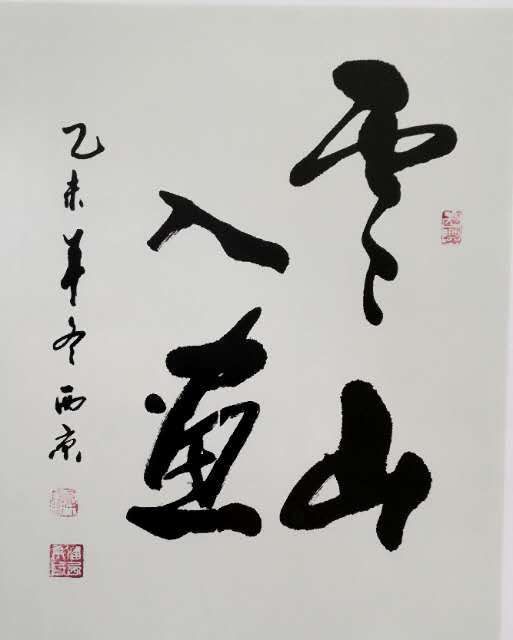 雲山
入畫
乙未年冬西京